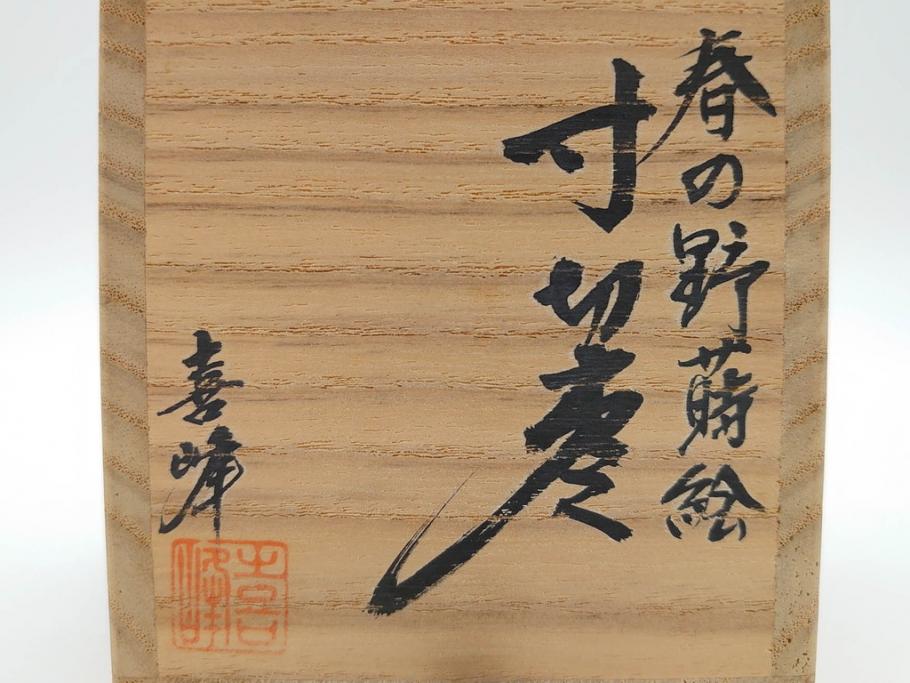 春の野蒔絵
寸切棗
喜峰
喜峰